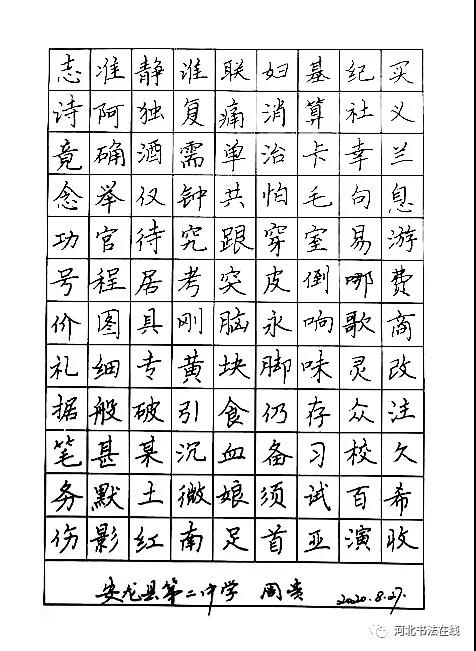 志准静谁联妇基纪买
诗阿独复痛消算社义
竟确酒需单治卡幸兰
念举仅钟共怕毛句息
功官待究跟穿室易游
号程居考突皮倒哪费
价图具刚脑永响歌商
礼细专黄块脚味灵改
据般破引食仍存众注
笔甚某沉血备习校欠
务默土微娘须试百希
伤影红南足首亚演收
安龙县第二中学 周 2020.8.27.
河北书法在线